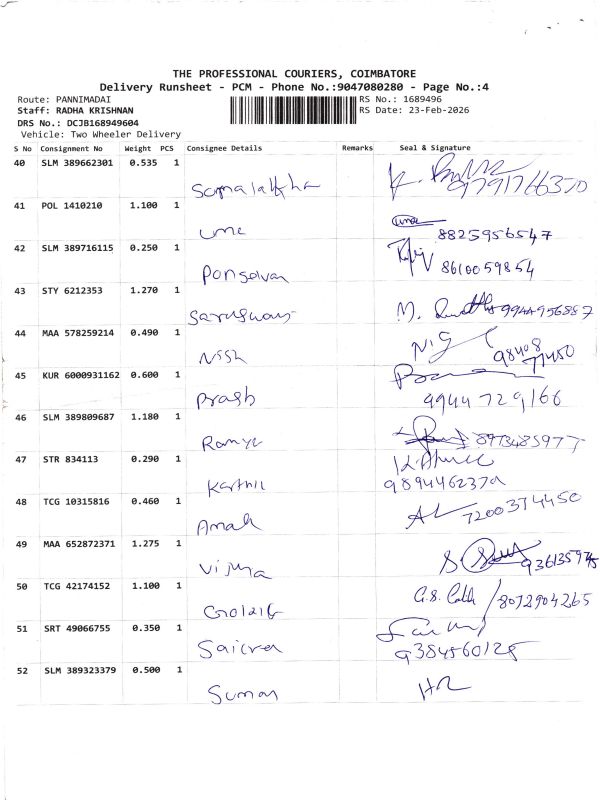 THE PROFESSIONAL COURIERS, COIMBATORE
Delivery Runsheet - PCM - Phone No.:9047080280 - Page No.:4
Route: PANNIMADAI
RS No.: 1689496
Staff: RADHA KRISHNAN
RS Date: 23-Feb-2026
DRS No.: DCJB168949604
Vehicle: Two Wheeler Delivery
S No Consignment No Weight PCS Consignee Details Remarks Seal & Signature
40 SLM 389662301 0.535 1
9791766370
41 POL 1410210 1.100 1
uma 8825956547
42 SLM 389716115 0.250 1
Ponselvan 8610059854
43 STY 6212353 1.270 1
M. 9944956887
44 MAA 578259214 0.490 1
Nish 98408
77450
45 KUR 6000931162 0.600 1
Prash 9944729166
46 SLM 389809687 1.180 1
Ramya 8973485977
47 STR 834113 0.290 1
Karthik 9894462370
48 TCG 10315816 0.460 1
Amal 7200374450
49 MAA 652872371 1.275 1
Vijaya
50 TCG 42174152 1.100 1
G.S. 8072904265
51 SRT 49066755 0.350 1
9384560128
52 SLM 389323379 0.500 1
Suman